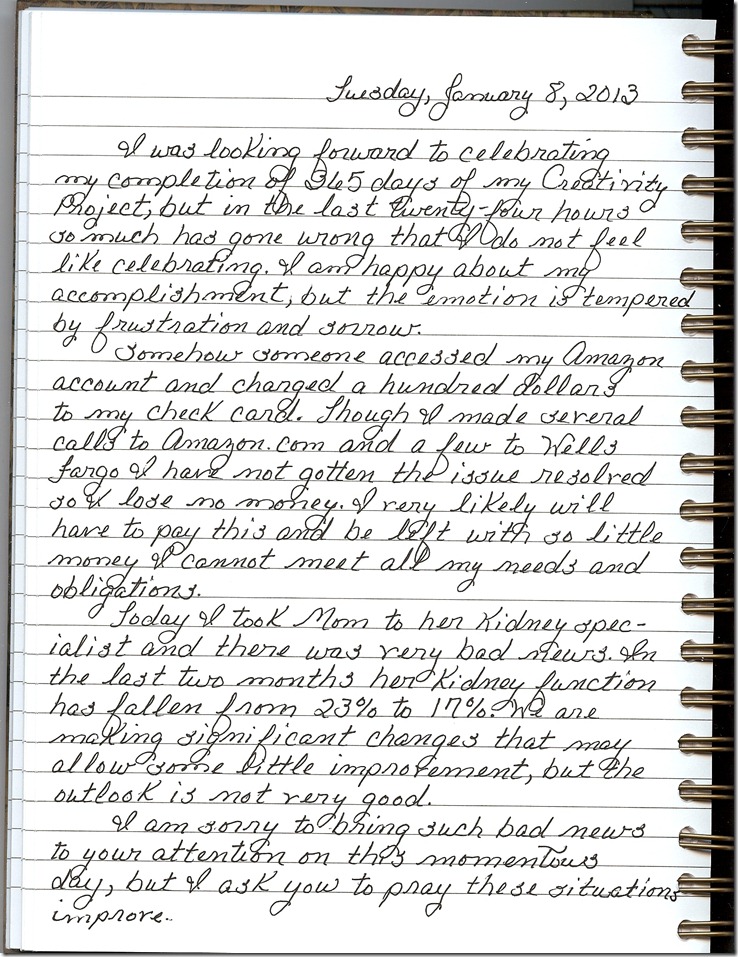 Tuesday, January 8, 2013
I was looking forward to celebrating
my completion of 365 days of my Creativity
Project, but in the last twenty-four hours
so much has gone wrong that I do not feel
like celebrating. I am happy about my
accomplishment, but the emotion is tempered
by frustration and sorrow.
Somehow someone accessed my Amazon
account and charged a hundred dollars
to my check card. Though I made several
calls to Amazon.com and a few to Wells
Fargo I have not gotten the issue resolved
so I lose no money. I very likely will
have to pay this and be left with so little
money I cannot meet all my needs and
obligations.
Today I took Mom to her Kidney spec-
ialist and there was very bad news. In
the last two months her Kidney function
has fallen from 23% to 17%. We are
making significant changes that may
allow some little improvement, but the
outlook is not very good.
I am sorry to bring such bad news
to your attention on this momentous
day, but I ask you to pray these situations
improve..